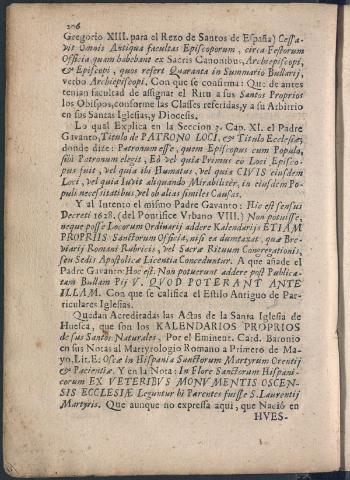 206
Gregorio XIII. para el Rezo de Santos de España) Cessa-
vit Omnis Antiqua facultas Episcoporum, circa Festorum
Officia quam habebant ex Sacris Canonibus, Archiepiscopi,
& Episcopi, quos refert Quaranta in Summario Bullarij,
verbo Archiepiscopi. Con que se confirma: Que de antes
tenian facultad de assignar el Ritu à sus Santos Proprios
los Obispos, conforme las Classes referidas, y a su Arbitrio
en sus Santas Iglesias, y Diocesis.
Lo qual Explica en la Seccion 3. Cap. XI. el Padre
Gavanto, Titulo de PATRONO LOCI, & Titulo Ecclesiæ,
donde dize: Patronum esse, quem Episcopus cum Populo,
sibi Patronum elegit, Eò vel quia Primus eò Loci Episco-
pus fuit, vel quia ibi Humatus, vel quia CIVIS eiusdem
Loci, vel quia Iuvit aliquando Mirabilitèr, in eiusdem Po-
puli necessitatibus, vel ob alias similes Causas.
Y al Intento el mismo Padre Gavanto: Hic est sensui
Decreti 1628. (del Pontifice Vrbano VIII.) Non potuisse,
neque posse Locorum Ordinarij addere Kalendarijs ETIAM
PROPRIIS Sanctorum Officia, nisi ea dumtaxat, quæ Bre-
viarij Romani Rubricis, vel Sacræ Rituum Congregationis,
seu Sedis Apostolicæ Licentia Conceduntur. A que añade el
Padre Gavanto: Hoc est. Non potuerunt addere post Publica-
tam Bullam Pij V. QVOD POTERANT ANTE
ILLAM. Con que se califica el Estilo Antiguo de Par-
ticulares Iglesias.
Quedan Acreditadas las Actas de la Santa Iglesia de
Huesca, que son los KALENDARIOS PROPRIOS
de sus Santos Naturales, Por el Eminent. Card. Baronio
en sus Notas al Martyrologio Romano a Primero de Ma-
yo, Lit. E: Oscæ in Hispania Sanctorum Martyrum Orentij
& Pacientiæ. Y en la Nota: In Flore Sanctorum Hispani-
corum EX VETERIBVS MONVMENTIS OSCEN-
SIS ECCLESIÆ Leguntur hi Parentes fuisse S. Laurentij
Martyris. Que aunque no expressa aqui, que Nació en
HVES-